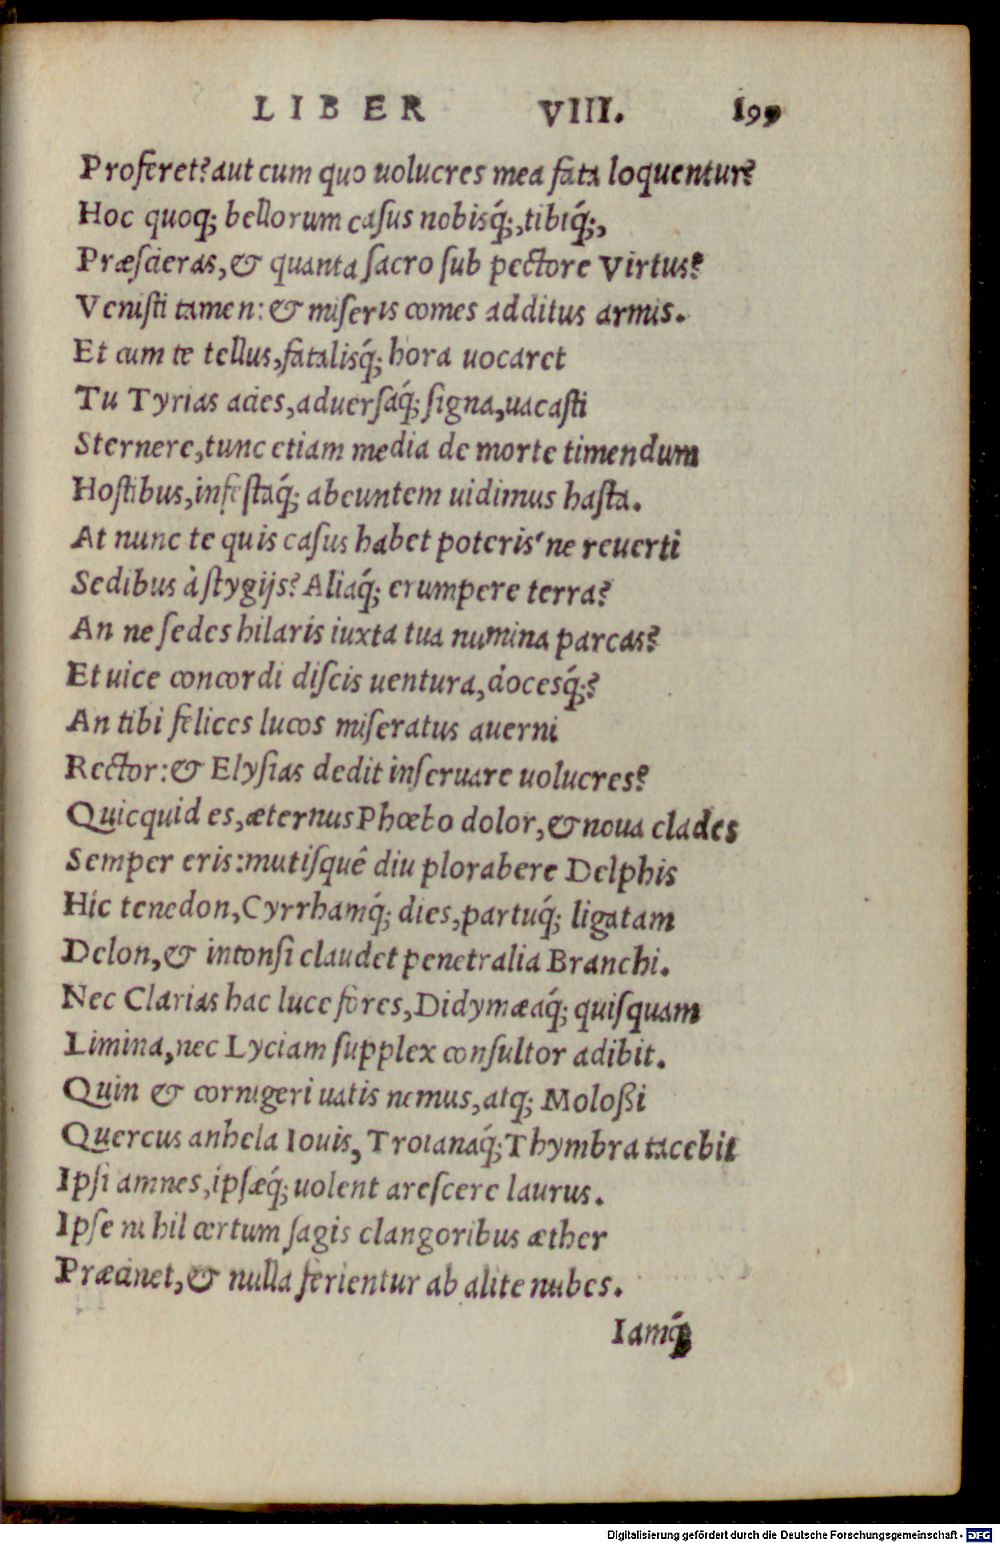 LIBER VIII. 199
Proferet? aut cum quo uolucres mea fata loquentur?
Hoc quoq; bellorum casus nobisq́;, tibiq́;,
Præscieras, & quanta sacro sub pectore Virtus?
Venisti tamen: & miseris comes additus armis.
Et cum te tellus, fatalisq́; hora uocaret
Tu Tyrias acies, aduersaq́; signa, uacasti
Sternere, tunc etiam media de morte timendum
Hostibus, infestaq́; abeuntem uidimus hasta.
At nunc te quis casus habet poteris'ne reuerti
Sedibus à stygijs? Aliaq́; erumpere terra?
An ne sedes hilaris iuxta tua numina parcas?
Et uice concordi discis uentura, docesq́;?
An tibi felices lucos miseratus auerni
Rector: & Elysias dedit inseruare uolucres?
Quicquid es, æternus Phœbo dolor, & noua clades
Semper eris: mutisquê diu plorabere Delphis
Híc tenedon, Cyrrhamq́; dies, partuq́; ligatam
Delon, & intonsi claudet penetralia Branchi.
Nec Clarias hac luce fores, Didymæaq́; quisquam
Limina, nec Lyciam supplex consultor adibit.
Quin & cornigeri uatis nemus, atq; Moloßi
Quercus anhela Iouis, Troianaq́; Thymbra tacebit
Ipsi amnes, ipsæq́; uolent arescere laurus.
Ipse nihil certum sagis clangoribus æther
Præcinet, & nulla ferientur ab alite nubes.
Iamq́;
Digitalisierung gefördert durch die Deutsche Forschungsgemeinschaft - DFG